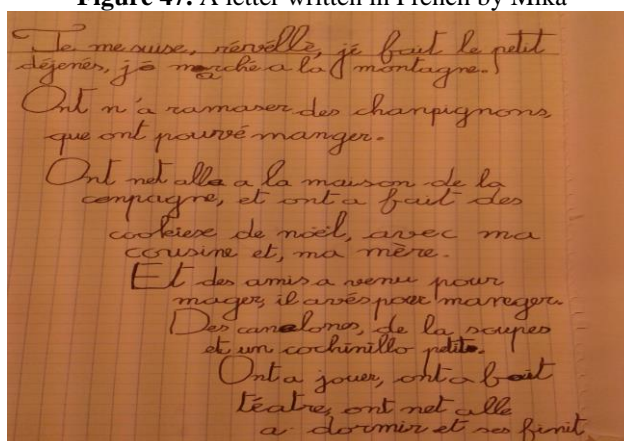 Figure 47. A letter written in French by Mika
Je me suise, révéllé, jé fait le petit
déjenés, jé marché a la montagne.
Ont n'a ramaser des chanpignons,
que ont pourvé manger.
Ont net alle a la maison de la
compagne, et ont a fait des
cookiese de noël, avec ma
cousine et, ma mère.
Et des amis a venu pour
mager, il avés pour mareger.
Des canelones, de la soupes
et un cochinillo petite.
Ont a jouer, ont a fait
téatre, ont net alle
a dormir et ses finit